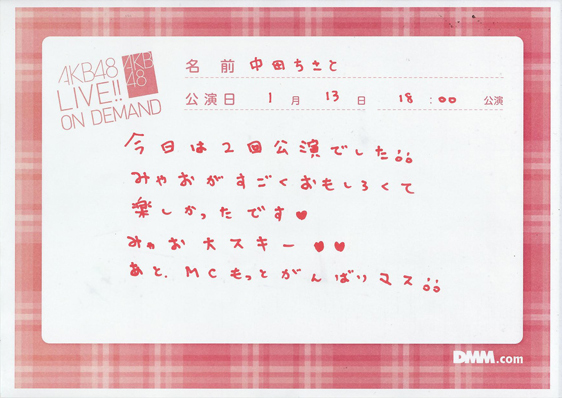 AKB48
LIVE!!
ON DEMAND
AKB
48
名 前 中田ちさと
公演日 1 月 13 日 18 : 00 公演
今日は2回公演でした
みゃおがすごくおもしろくて
楽しかったです♥
みゃお大スキー♥♥
あと、MCもっとがんばりマス
DMM.com